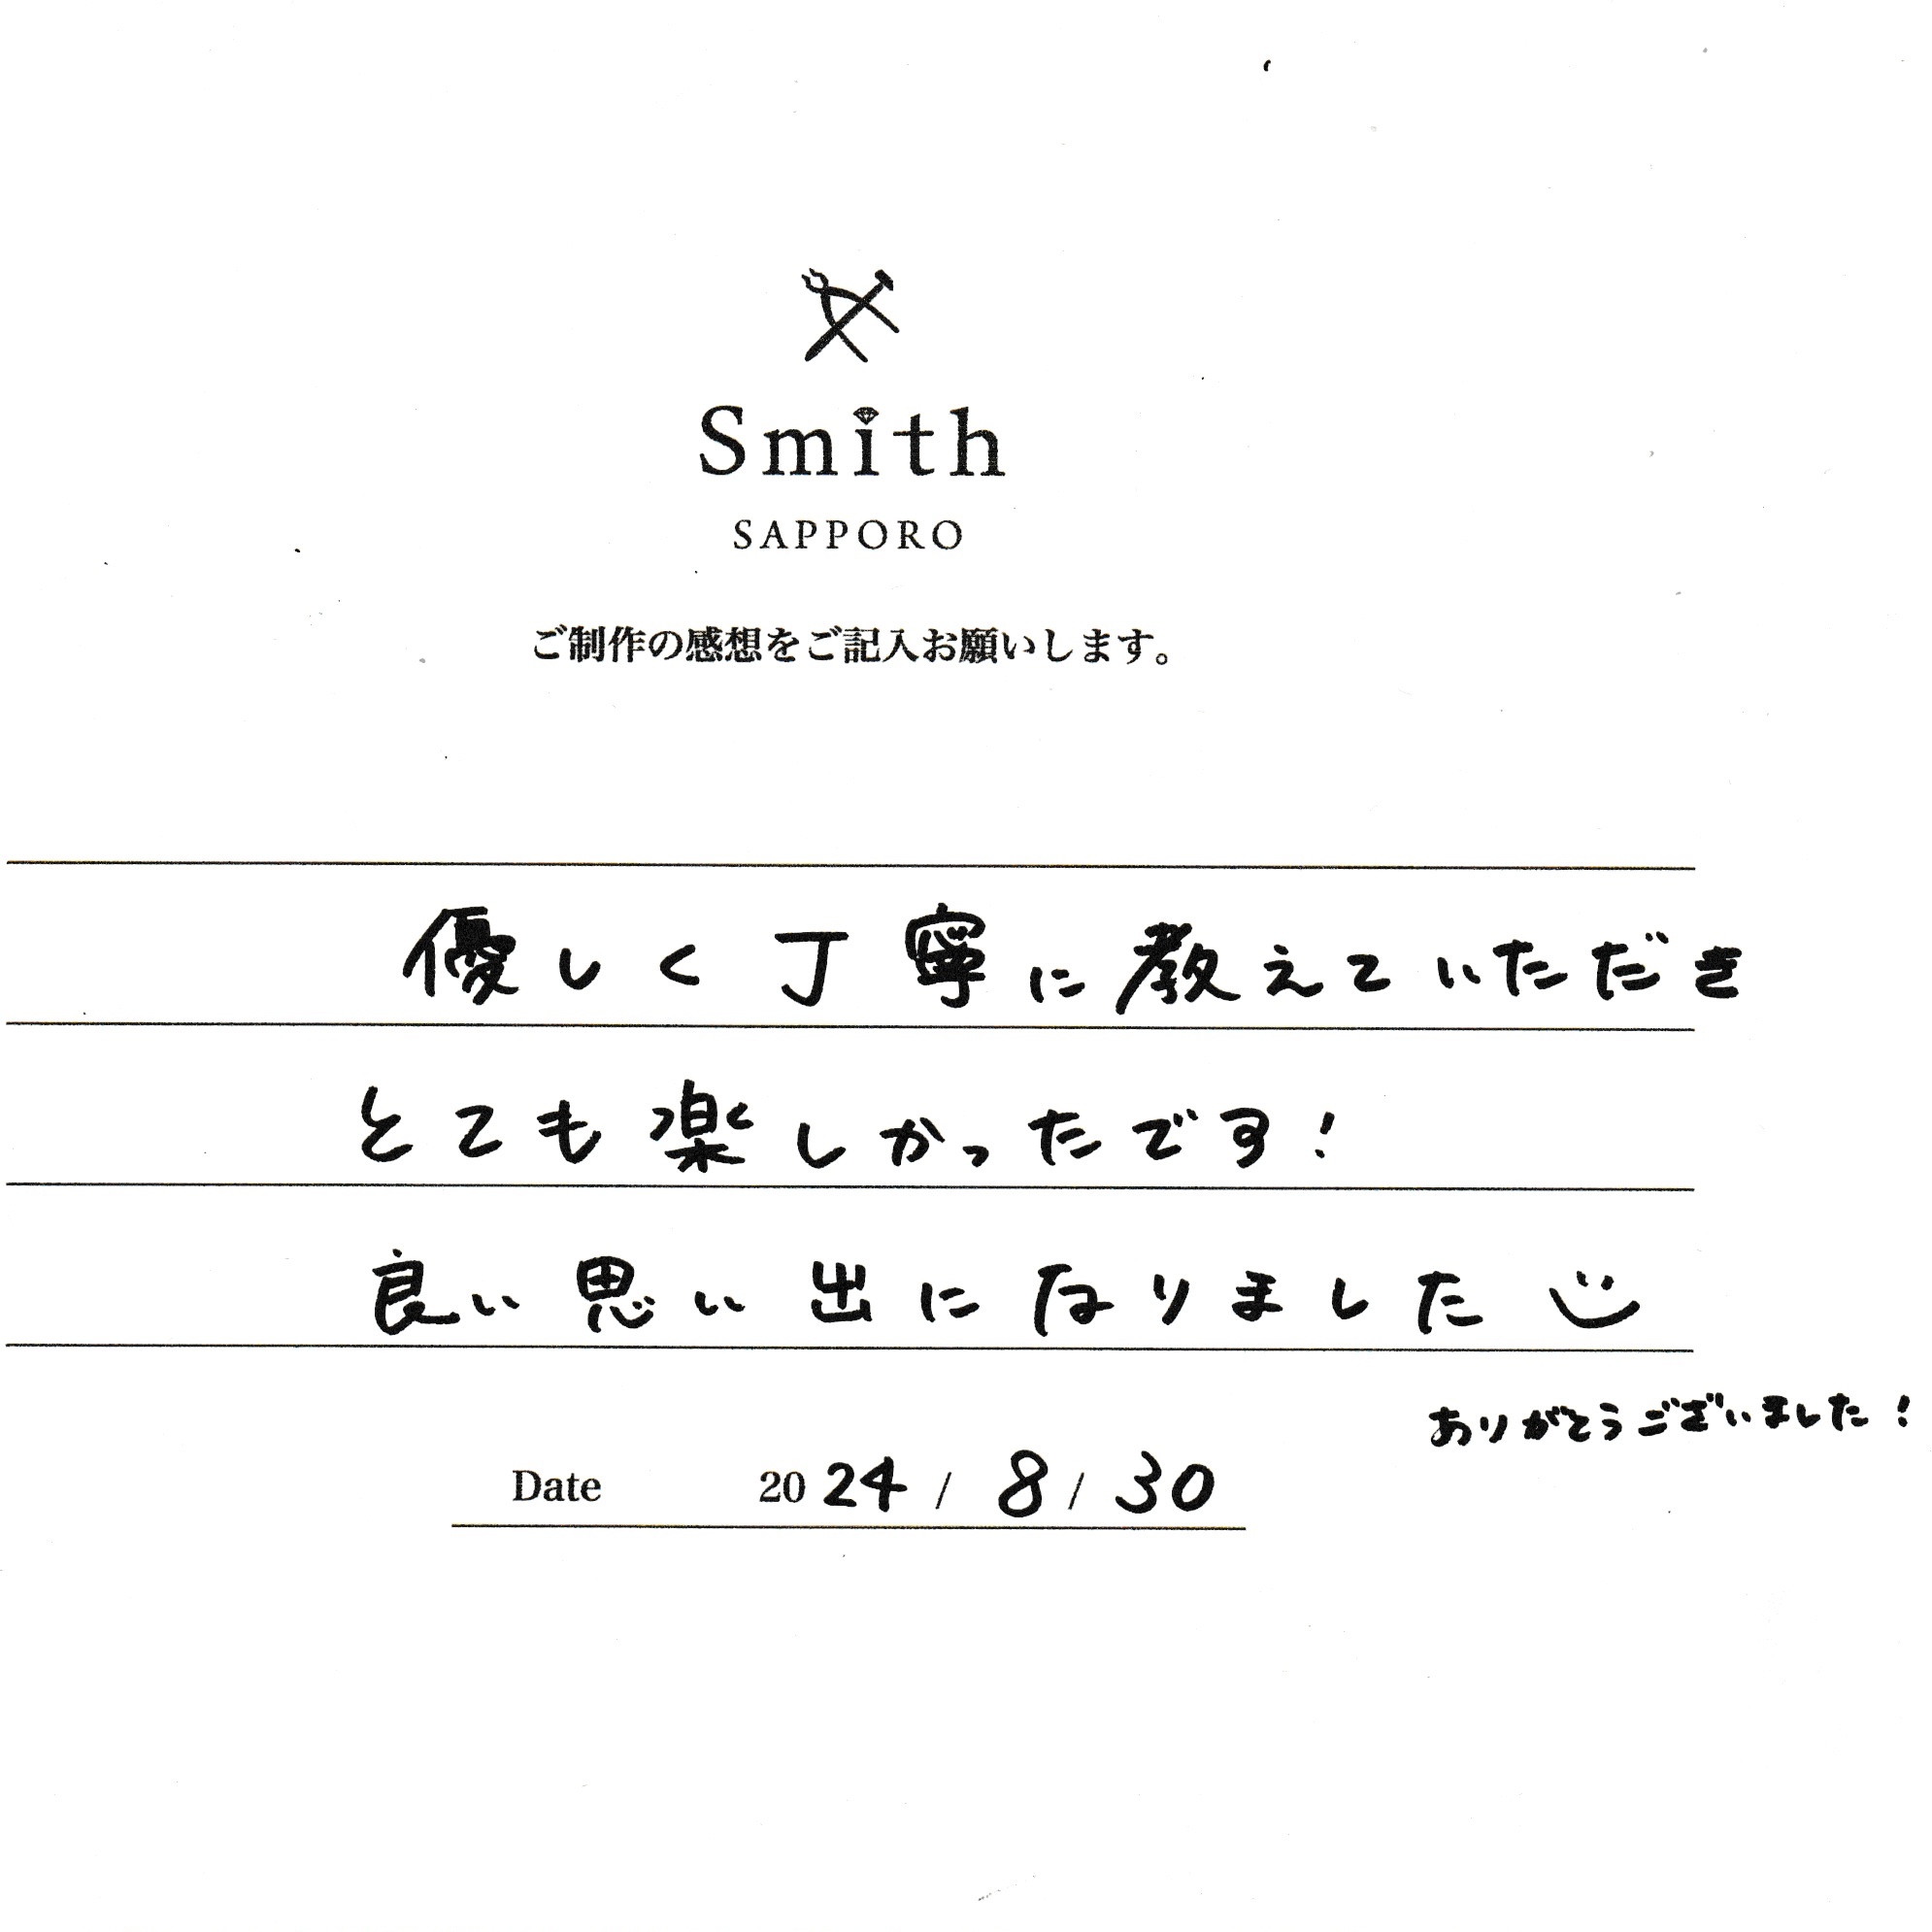 Smith
SAPPORO
ご制作の感想をご記入お願いします。
優しく丁寧に教えていただき
とても楽しかったです!
良い思い出になりました
ありがとうございました!
Date 2024 / 8 / 30